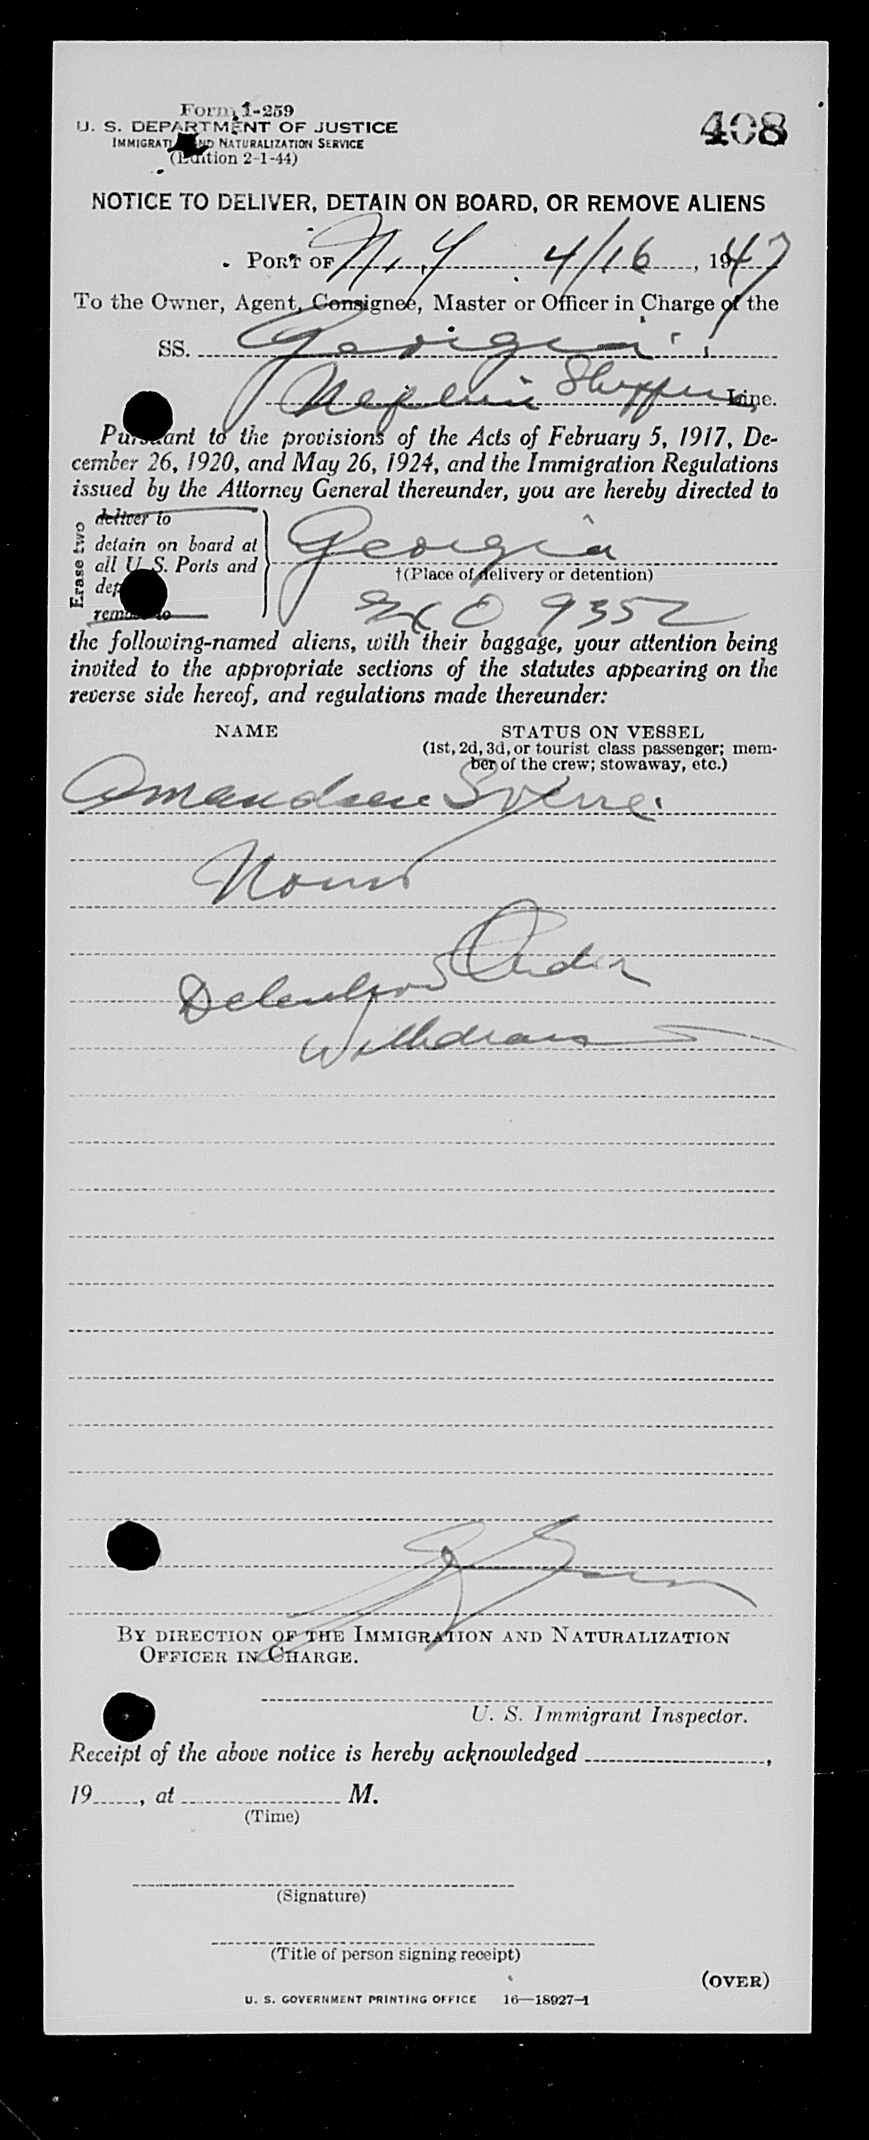 Form I-259
408
U. S. DEPARTMENT OF JUSTICE
IMMIGRATION AND NATURALIZATION SERVICE
(Edition 2-1-44)
NOTICE TO DELIVER, DETAIN ON BOARD, OR REMOVE ALIENS
PORT OF N.Y. 4/16, 1947
To the Owner, Agent, Consignee, Master or Officer in Charge of the
SS. Georgia
Line.
Pursuant to the provisions of the Acts of February 5, 1917, De-
cember 26, 1920, and May 26, 1924, and the Immigration Regulations
issued by the Attorney General thereunder, you are hereby directed to
Erase two
deliver to
detain on board at
all U. S. Ports and
remove to
Georgia
†(Place of delivery or detention)
9352
the following-named aliens, with their baggage, your attention being
invited to the appropriate sections of the statutes appearing on the
reverse side hereof, and regulations made thereunder:
NAME STATUS ON VESSEL
(1st, 2d, 3d, or tourist class passenger; mem-
ber of the crew; stowaway, etc.)
Amandsen Sverre
Detention Order
Withdrawn
BY DIRECTION OF THE IMMIGRATION AND NATURALIZATION
OFFICER IN CHARGE.
U. S. Immigrant Inspector.
Receipt of the above notice is hereby acknowledged
19, at M.
(Time)
(Signature)
(Title of person signing receipt)
(OVER)
U. S. GOVERNMENT PRINTING OFFICE 16—18927-1